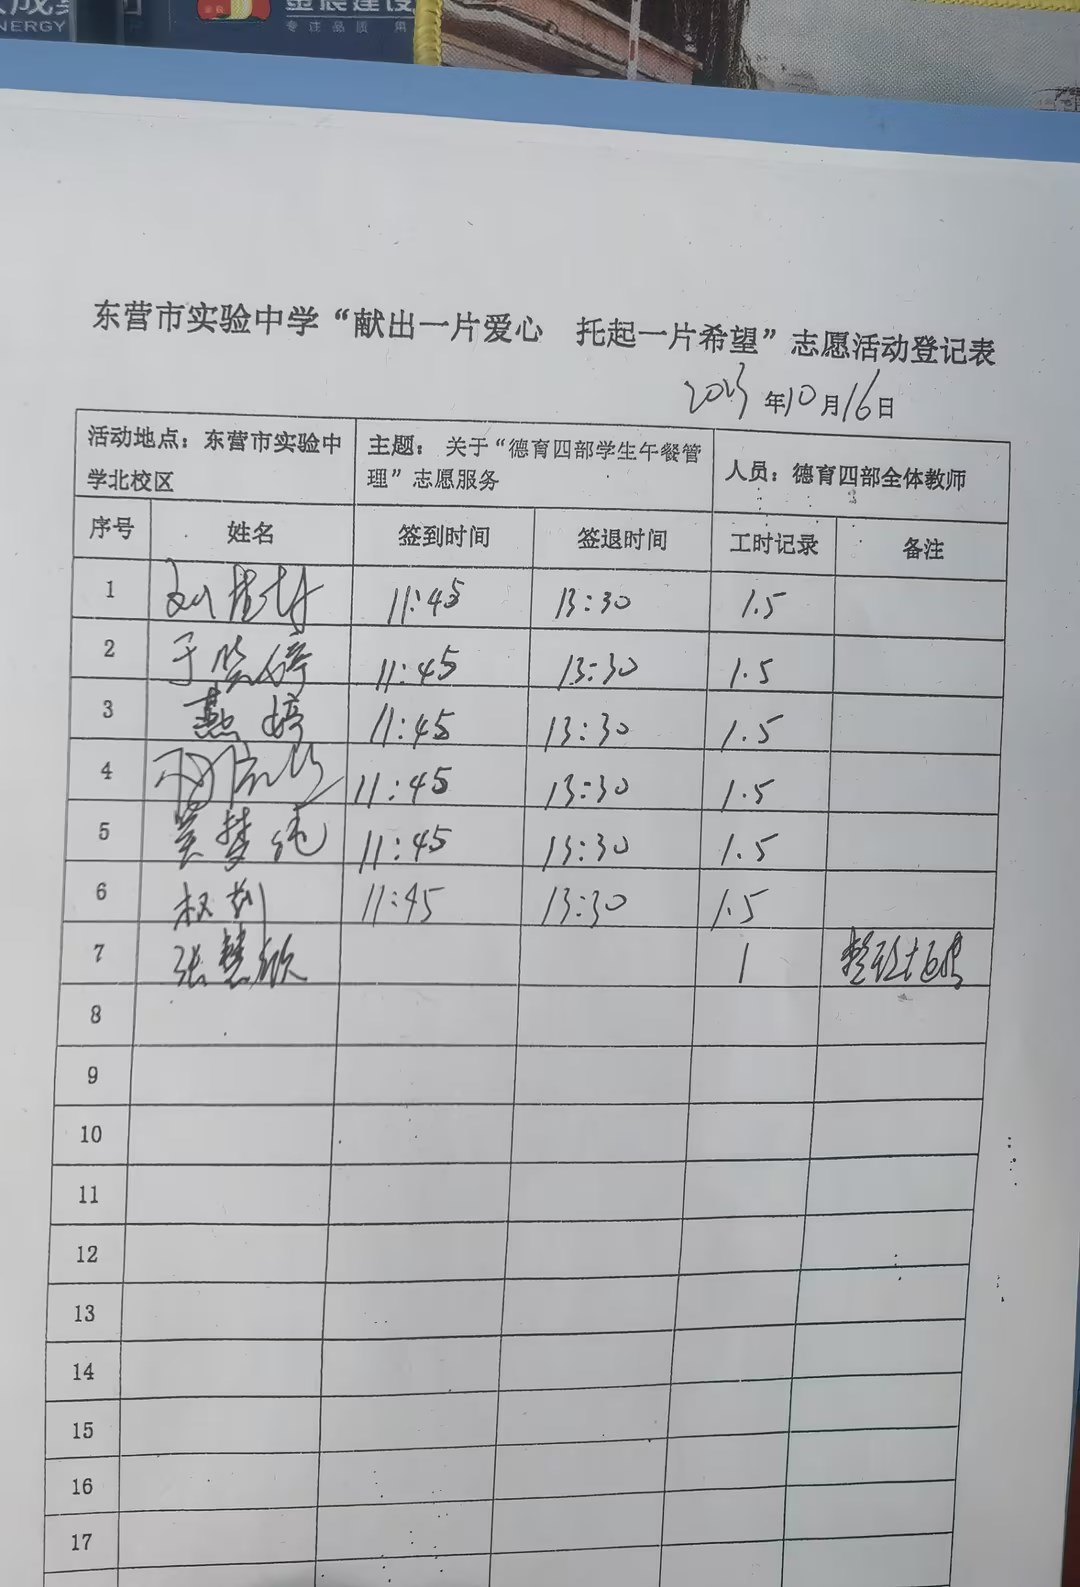 NERGY
专注品质 用
东营市实验中学“献出一片爱心 托起一片希望”志愿活动登记表
2023年10月16日
活动地点：东营市实验中学北校区 主题：关于“德育四部学生午餐管理”志愿服务 人员：德育四部全体教师
序号 姓名 签到时间 签退时间 工时记录 备注
1 11:45 13:30 1.5
2 于 11:45 13:30 1.5
3 燕婷 11:45 13:30 1.5
4 11:45 13:30 1.5
5 吴梦纯 11:45 13:30 1.5
6 权利 11:45 13:30 1.5
7 张慧欣 1
8
9
10
11
12
13
14
15
16
17